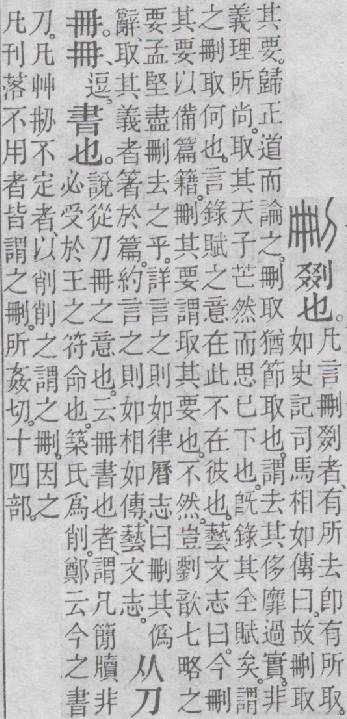 刪剟也。凡言刪剟者、有所去卽有所取。
如史記司馬相如傳曰。故刪取
其要。歸正道而論之。刪取猶節取也。謂去其侈靡過實。非
義理所尚。取其天子芒然而思已下也。旣錄其全賦矣。謂
之刪取何也。言錄賦之意在此不在彼也。藝文志曰。今刪
其要以備篇籍。刪其要謂取其要也。不然。豈劉歆七略之
要孟堅盡刪去之乎。詳言之則如律曆志曰刪其僞
辭、取其義者箸於篇。約言之則如相如傳、藝文志。从刀
冊。冊、逗。書也。說從刀冊之意也。云冊書也者、謂凡簡牘非
必受於王之符命也。築氏爲削。鄭云今之書
刀。凡艸剏不定者、以削削之謂之刪。因之
凡刊落不用者皆謂之刪。所姦切。十四部。